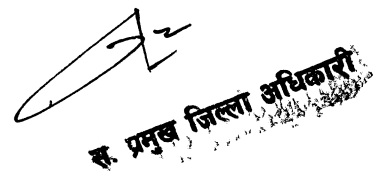 स. प्रमुख जिल्ला अधिकारी